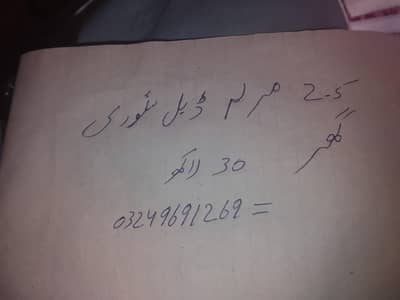 2.5 مرلہ ڈبل سٹوری
گھر 30 لاکھ
03249691269 =